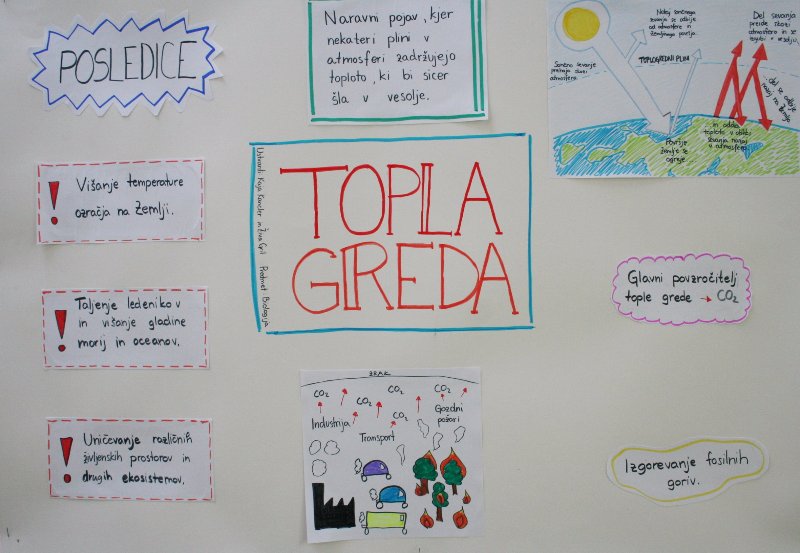 POSLEDICE
Naravni pojav, kjer
nekateri plini v
atmosferi zadržujejo
toploto, ki bi sicer
šla v vesolje.
Nekaj sončnega
sevanja se odbije
od atmosfere in
zemljinega površja.
Del sevanja
preide skozi
atmosfero in se
izgubi v vesolju.
Sončno sevanje
prehaja skozi
atmosfero
TOPLOGREDNI PLINI
...del se odbije
nazaj na Zemljo
Površje
zemlje se
ogreje...
...in oddaja
toploto v obliki
sevanja nazaj
v atmosfero.
! Višanje temperature
ozračja na Zemlji.
Ustvarili: Kaja in Živa Gril Predmet: Biologija
TOPLA
GREDA
Glavni povzročitelj
tople grede → CO2
! Taljenje ledenikov
in višanje gladine
morij in oceanov.
ZRAK
CO2 CO2 CO2
CO2 CO2
Industrija
Transport
Gozdni
požari
! Uničevanje različnih
življenskih prostorov in
drugih ekosistemov.
Izgorevanje fosilnih
goriv.